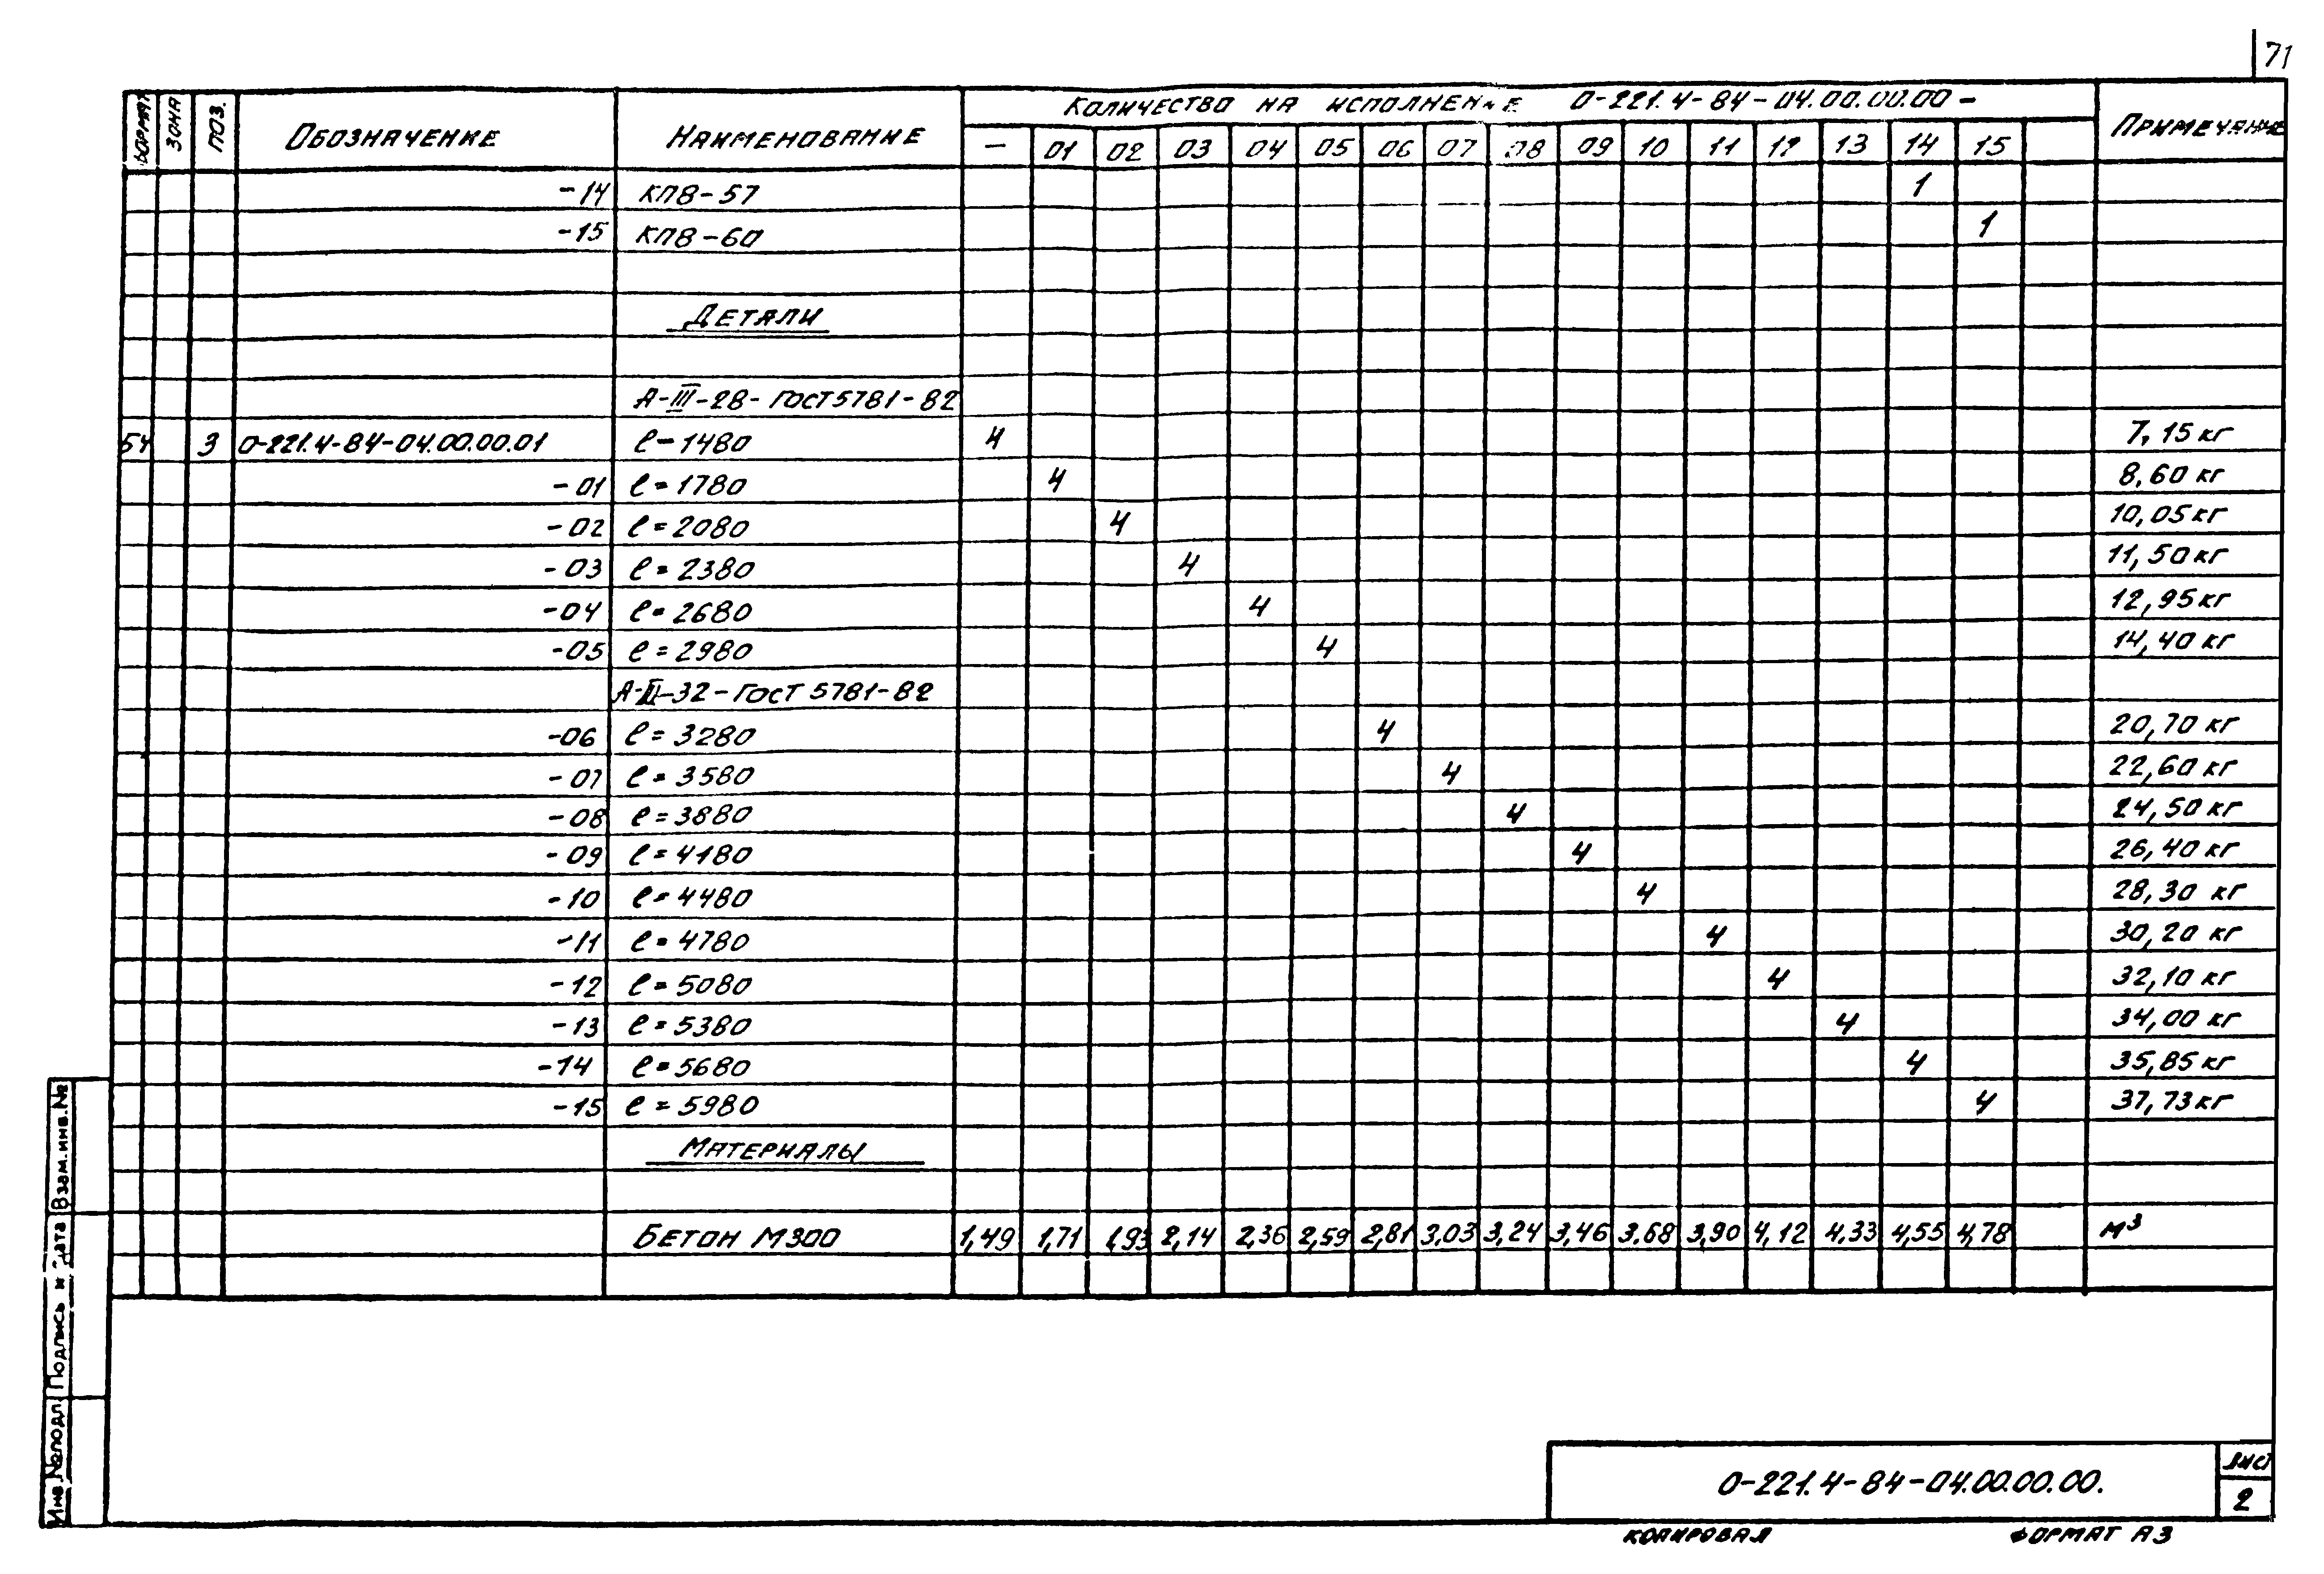 71
ФОРМАТ ЗОНА ПОЗ. ОБОЗНАЧЕНИЕ НАИМЕНОВАНИЕ КОЛИЧЕСТВО НА ИСПОЛНЕНИЕ 0-221.4-84-04.00.00.00- ПРИМЕЧАНИЕ
— 01 02 03 04 05 06 07 08 09 10 11 12 13 14 15
-14 КП8-57 1
-15 КП8-60 1
ДЕТАЛИ
А-III-28-ГОСТ 5781-82
Б4 3 0-221.4-84-04.00.00.01 ℓ-1480 4 7,15 кг
-01 ℓ=1780 4 8,60 кг
-02 ℓ=2080 4 10,05 кг
-03 ℓ=2380 4 11,50 кг
-04 ℓ=2680 4 12,95 кг
-05 ℓ=2980 4 14,40 кг
А-III-32-ГОСТ 5781-82
-06 ℓ=3280 4 20,70 кг
-07 ℓ=3580 4 22,60 кг
-08 ℓ=3880 4 24,50 кг
-09 ℓ=4180 4 26,40 кг
-10 ℓ=4480 4 28,30 кг
-11 ℓ=4780 4 30,20 кг
-12 ℓ=5080 4 32,10 кг
-13 ℓ=5380 4 34,00 кг
-14 ℓ=5680 4 35,85 кг
-15 ℓ=5980 4 37,73 кг
МАТЕРИАЛЫ
БЕТОН М300 1,49 1,71 1,93 2,14 2,36 2,59 2,81 3,03 3,24 3,46 3,68 3,90 4,12 4,33 4,55 4,78 м³
Инв. № подл. Подпись и дата Взам. инв. №
0-221.4-84-04.00.00.00.
ЛИСТ
2
КОПИРОВАЛ ФОРМАТ А3